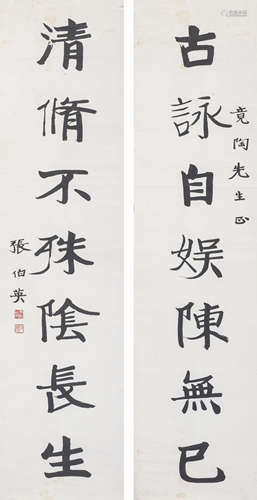 古詠自娱陳無已
竟陶先生正
清脩不殊陰長生
張伯英